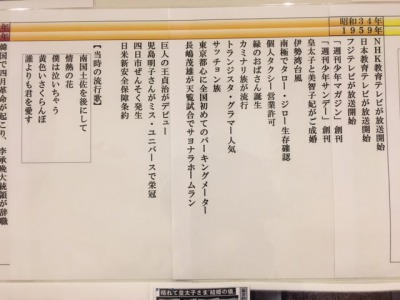 昭和34年
1959年
NHK教育テレビが放送開始
日本教育テレビが放送開始
フジテレビが放送開始
「週刊少年マガジン」創刊
「週刊少年サンデー」創刊
皇太子と美智子妃がご成婚
伊勢湾台風
南極でタロー・ジロー生存確認
個人タクシー営業許可
緑のおばさん誕生
カミナリ族が流行
トランジスタ・グラマー人気
サッチョン族
東京都心に全国初めてのパーキングメーター
長嶋茂雄が天覧試合でサヨナラホームラン
巨人の王貞治がデビュー
児島明子さんがミス・ユニバースで栄冠
四日市ぜんそく発生
日米新安全保障条約
【当時の流行歌】
南国土佐を後にして
情熱の花
僕は泣いちゃう
黄色いさくらんぼ
誰よりも君を愛す
韓国で四月革命が起こり、李承晩大統領が辞職
晴れて皇太子さま"結婚の儀"